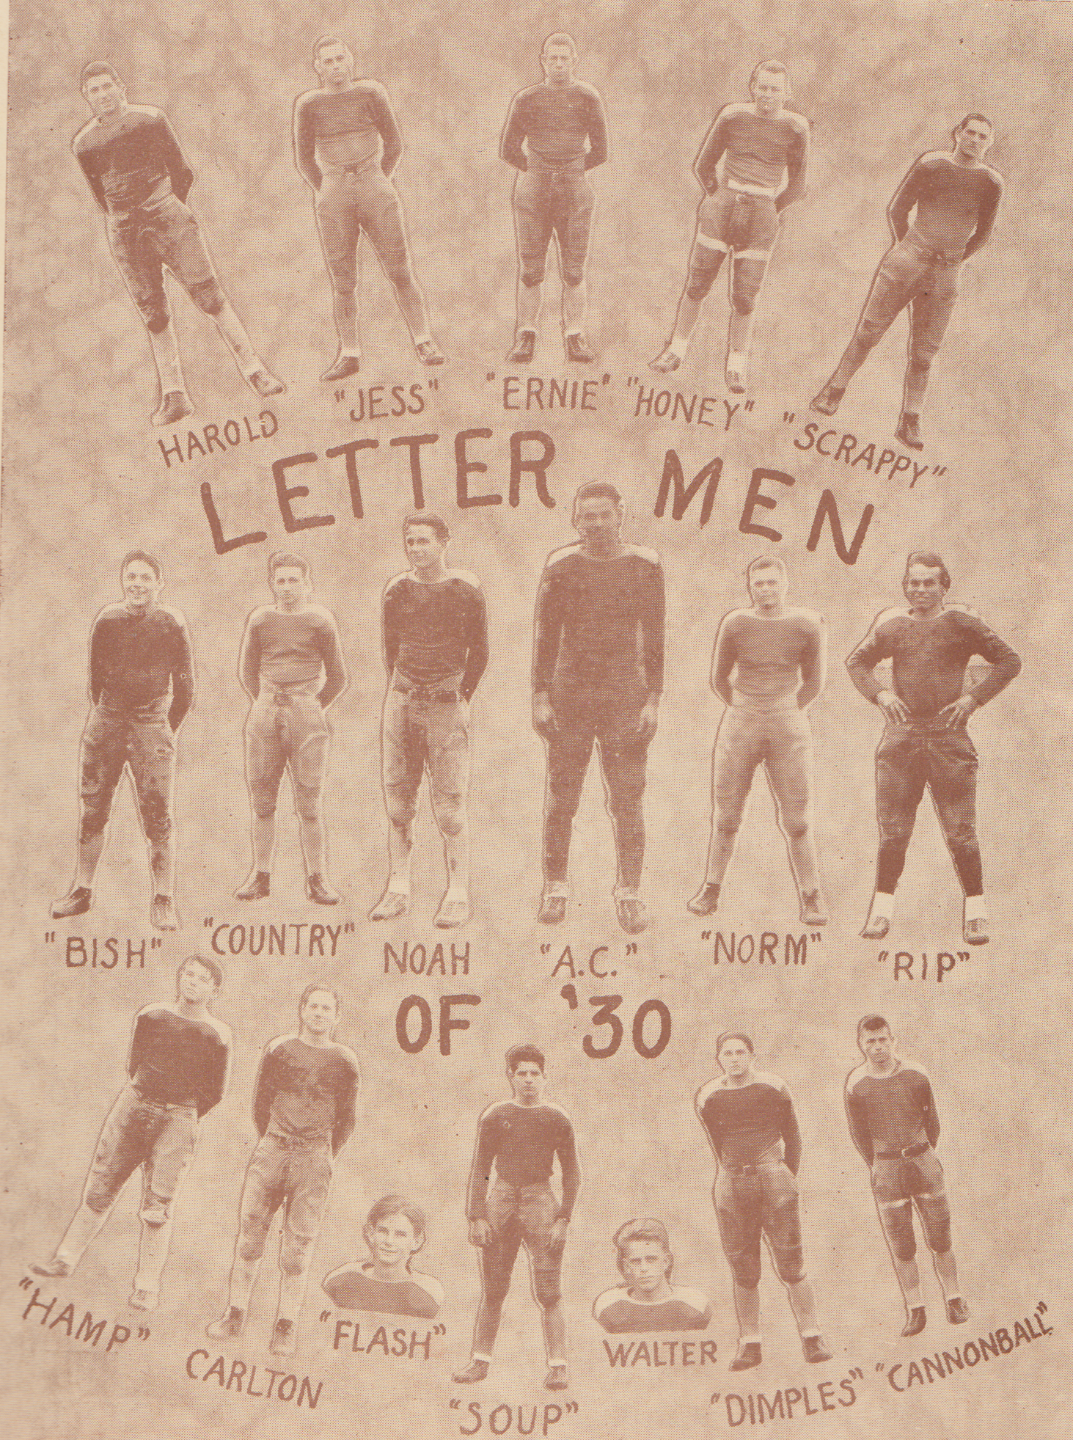 HAROLD
"JESS"
"ERNIE"
"HONEY"
"SCRAPPY"
LETTER MEN
"BISH"
"COUNTRY"
NOAH
"A.C."
"NORM"
"RIP"
OF '30
"HAMP"
CARLTON
"FLASH"
"SOUP"
WALTER
"DIMPLES"
"CANNONBALL"